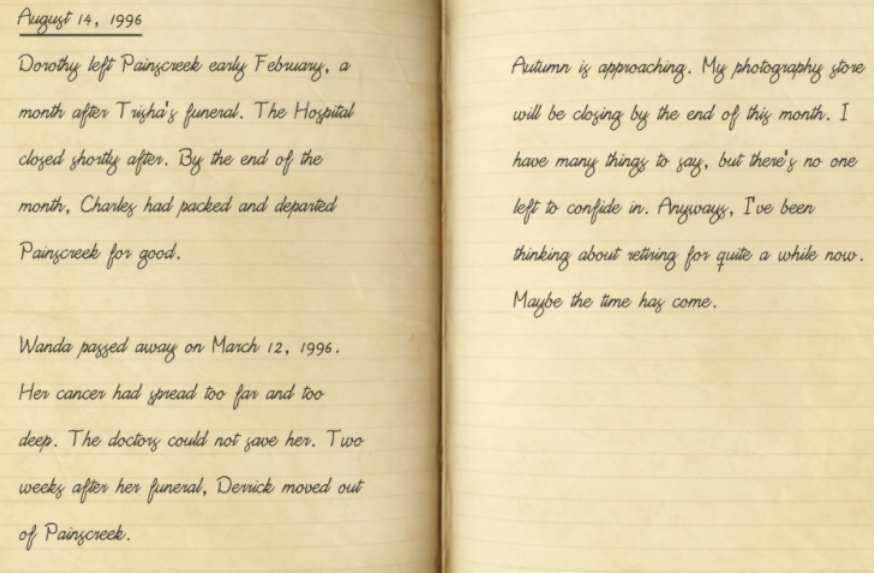 August 14, 1996
Dorothy left Painscreek early February, a
month after Trisha's funeral. The Hospital
closed shortly after. By the end of the
month, Charles had packed and departed
Painscreek for good.
Wanda passed away on March 12, 1996.
Her cancer had spread too far and too
deep. The doctors could not save her. Two
weeks after her funeral, Derrick moved out
of Painscreek.
Autumn is approaching. My photography store
will be closing by the end of this month. I
have many things to say, but there's no one
left to confide in. Anyways, I've been
thinking about retiring for quite a while now.
Maybe the time has come.